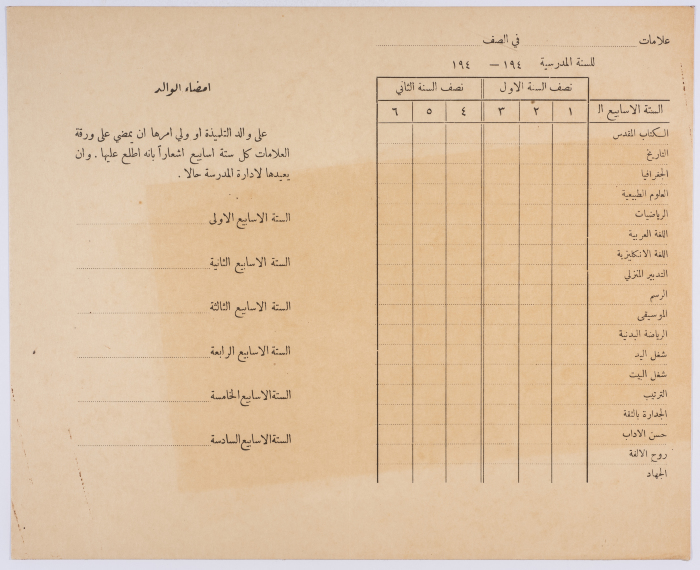 علامات ........ في الصف ........
للسنة المدرسية ١٩٤ — ١٩٤
نصف السنة الاول نصف السنة الثاني
الستة الاسابيع الـ ١ ٢ ٣ ٤ ٥ ٦
الكتاب المقدس
التاريخ
الجغرافيا
العلوم الطبيعية
الرياضيات
اللغة العربية
اللغة الانكليزية
التدبير المنزلي
الرسم
الموسيقى
الرياضة البدنية
شغل اليد
شغل البيت
الترتيب
الجدارة بالثقة
حسن الاداب
روح الالفة
الجهاد
امضاء الوالد
على والد التلميذة او ولي امرها ان يمضي على ورقة
العلامات كل ستة اسابيع اشعاراً بانه اطلع عليها . وان
يعيدها لادارة المدرسة حالا .
الستة الاسابيع الاولى
الستة الاسابيع الثانية
الستة الاسابيع الثالثة
الستة الاسابيع الرابعة
الستة الاسابيع الخامسة
الستة الاسابيع السادسة